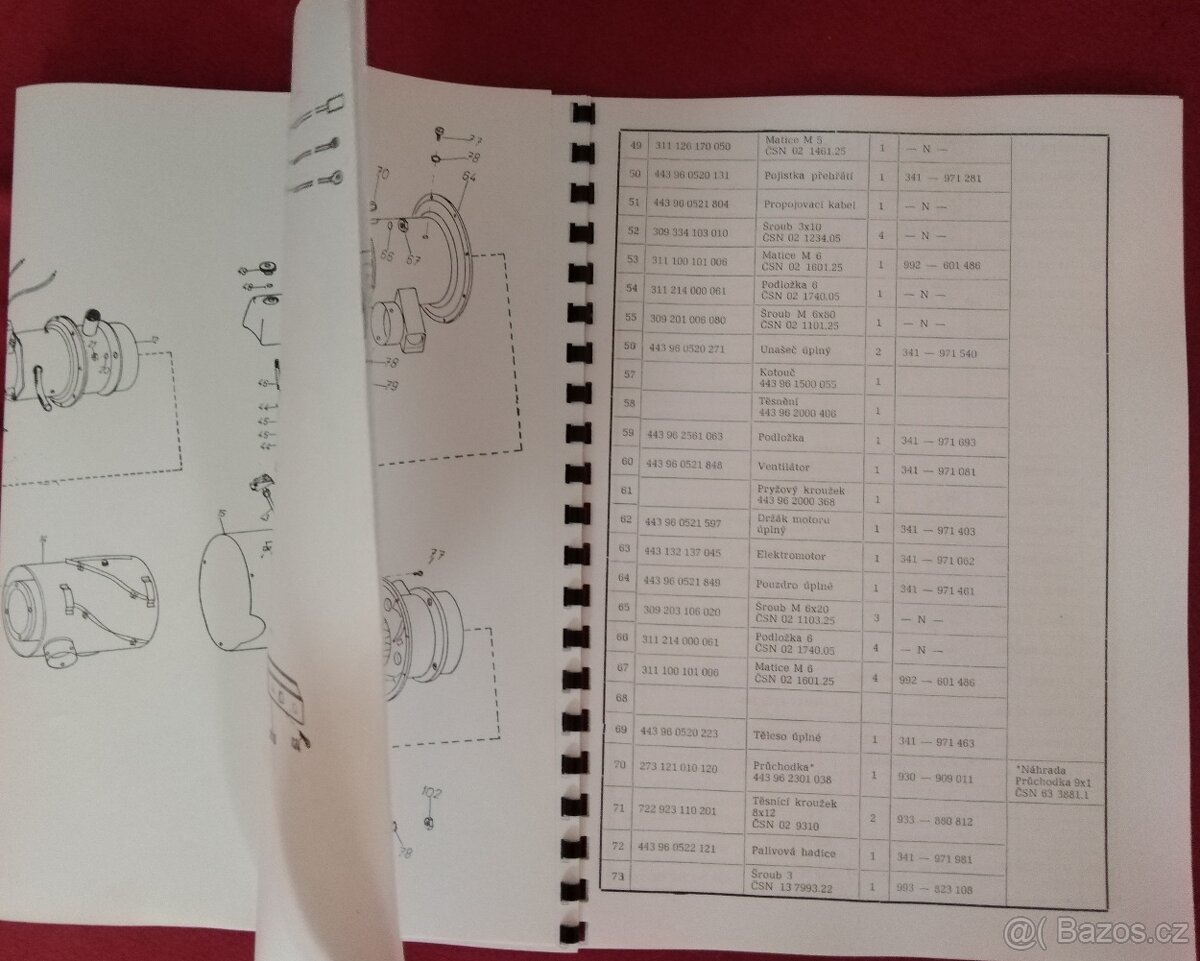 77
78
70
64
66
67
78
79
77
102
78
49 311 126 170 050 Matice M 5 1 — N —
ČSN 02 1461.25
50 443 96 0520 131 Pojistka přehřátí 1 341 — 971 281
51 443 96 0521 804 Propojovací kabel 1 — N —
52 309 334 103 010 Šroub 3x10 4 — N —
ČSN 02 1234.05
53 311 100 101 006 Matice M 6 1 992 — 601 486
ČSN 02 1601.25
54 311 214 000 061 Podložka 6 1 — N —
ČSN 02 1740.05
55 309 201 006 080 Šroub M 6x80 1 — N —
ČSN 02 1101.25
56 443 96 0520 271 Unašeč úplný 2 341 — 971 540
57 Kotouč 1
443 96 1500 055
58 Těsnění 1
443 96 2000 406
59 443 96 2561 063 Podložka 1 341 — 971 693
60 443 96 0521 848 Ventilátor 1 341 — 971 081
61 Pryžový kroužek 1
443 96 2000 368
62 443 96 0521 597 Držák motoru 1 341 — 971 403
úplný
63 443 132 137 045 Elektromotor 1 341 — 971 062
64 443 96 0521 849 Pouzdro úplné 1 341 — 971 461
65 309 203 106 020 Šroub M 6x20 3 — N —
ČSN 02 1103.25
66 311 214 000 061 Podložka 6 4 — N —
ČSN 02 1740.05
67 311 100 101 006 Matice M 6 4 992 — 601 486
ČSN 02 1601.25
68
69 443 96 0520 223 Těleso úplné 1 341 — 971 463
70 273 121 010 120 Průchodka* 1 930 — 909 011 *Náhrada
443 96 2301 038 Průchodka 9x1
ČSN 63 3881.1
71 722 923 110 201 Těsnící kroužek 2 933 — 880 812
8x12
ČSN 02 9310
72 443 96 0522 121 Palivová hadice 1 341 — 971 981
73 Šroub 3 1 993 — 823 108
ČSN 13 7993.22
@( Bazos.cz